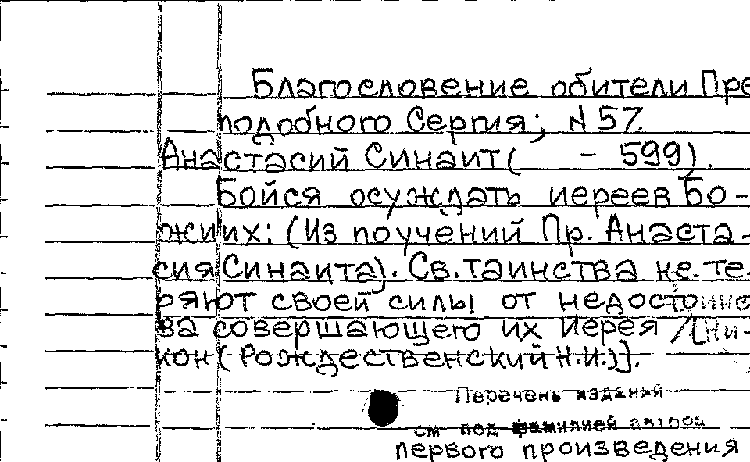 Благословение обители Пре
подобного Сергия; N 57.
Анастасий Синаит ( - 599).
Бойся осуждать иереев Бо-
жиих: (Из поучений Пр. Анаста-
сия Синаита). Св. таинства не те-
ряют своей силы от недостоинс
ва совершающего их иерея / [Ни-
кон (Рождественский Н.И.)].
Перечень изданий
см под фамилией автора
первого произведения